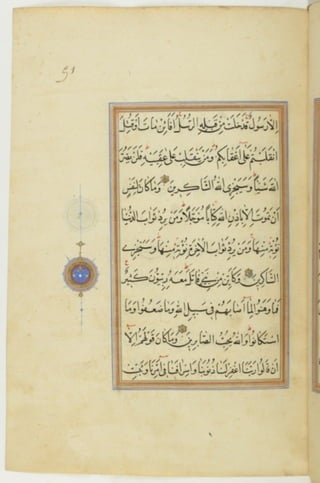 51
إلا رسول قد خلت من قبله الرسل أفإن مات أو قتل
انقلبتم على أعقابكم ومن ينقلب على عقبيه فلن يضر
الله شيئا وسيجزي الله الشاكرين وما كان لنفس
أن تموت إلا بإذن الله كتابا مؤجلا ومن يرد ثواب الدنيا
نؤته منها ومن يرد ثواب الآخرة نؤته منها وسنجزي
الشاكرين وكأين من نبي قاتل معه ربيون كثير
فما وهنوا لما أصابهم في سبيل الله وما ضعفوا وما
استكانوا والله يحب الصابرين وما كان قولهم إلا
أن قالوا ربنا اغفر لنا ذنوبنا وإسرافنا في أمرنا وثبت